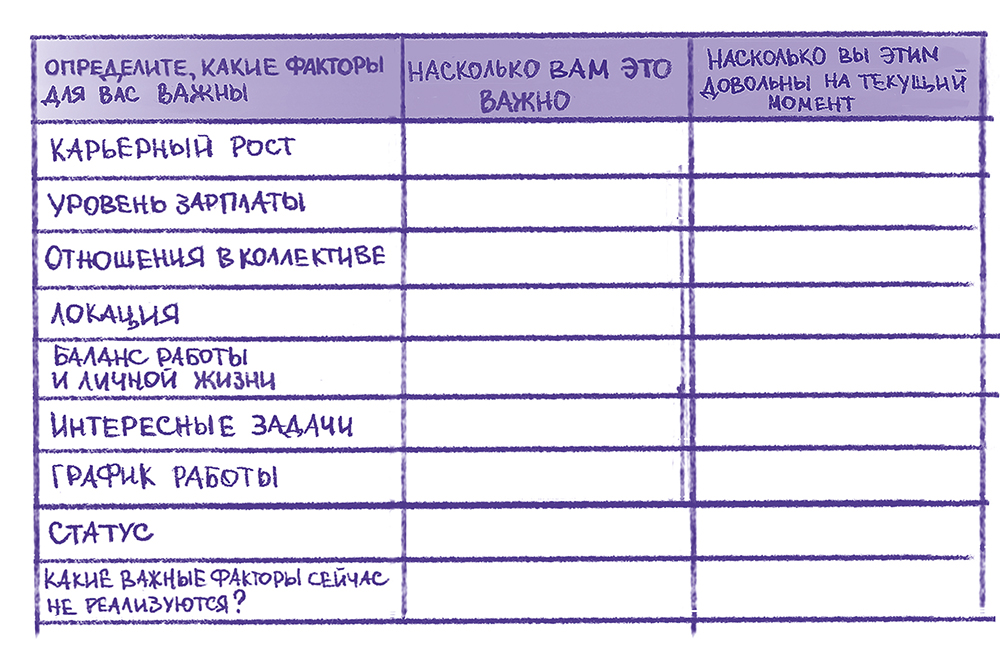 ОПРЕДЕЛИТЕ, КАКИЕ ФАКТОРЫ
ДЛЯ ВАС ВАЖНЫ
НАСКОЛЬКО ВАМ ЭТО
ВАЖНО
НАСКОЛЬКО ВЫ ЭТИМ
ДОВОЛЬНЫ НА ТЕКУЩИЙ
МОМЕНТ
КАРЬЕРНЫЙ РОСТ
УРОВЕНЬ ЗАРПЛАТЫ
ОТНОШЕНИЯ В КОЛЛЕКТИВЕ
ЛОКАЦИЯ
БАЛАНС РАБОТЫ
И ЛИЧНОЙ ЖИЗНИ
ИНТЕРЕСНЫЕ ЗАДАЧИ
ГРАФИК РАБОТЫ
СТАТУС
КАКИЕ ВАЖНЫЕ ФАКТОРЫ СЕЙЧАС
НЕ РЕАЛИЗУЮТСЯ?